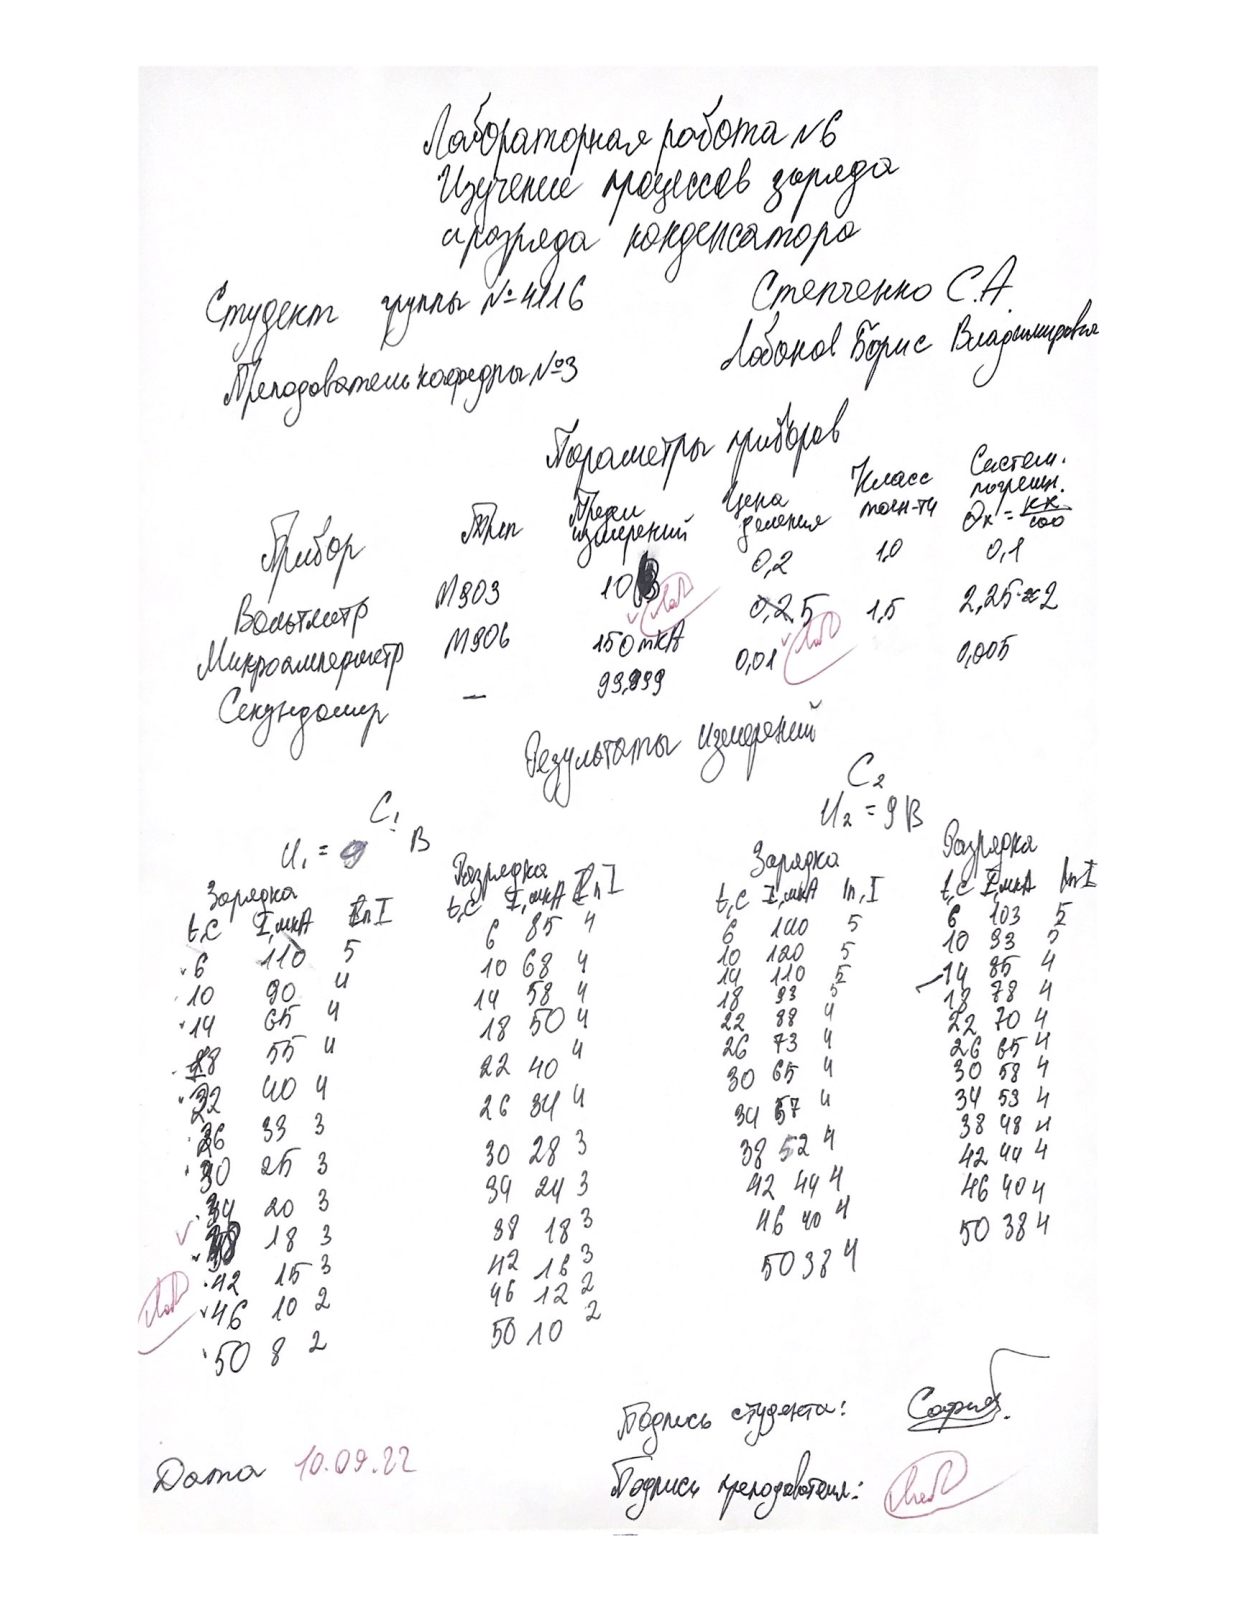 Лабораторная работа №6
Изучение процессов заряда
и разряда конденсатора
Студент группы №4116 Степченко С.А.
Преподаватель кафедры №3 Лобанов Борис Владимирович
Параметры приборов
Прибор Тип Предел измерений Цена деления Класс точн-ти Систем. погрешн. θx = кx/100
Вольтметр М903 10 0,2 1.0 0,1
Микроамперметр М906 150 мкА 5 1,5 2,25≈2
Секундомер — 99,999 0,01 0,005
Результаты измерений
C1 C2
U1 = 9 В U2 = 9 В
Зарядка Разрядка Зарядка Разрядка
t,с I,мкА ln I t,с I,мкА ln I t,с I,мкА ln,I t,с I,мкА ln I
6 110 5 6 85 4 6 140 5 6 103 5
10 90 4 10 68 4 10 120 5 10 93 5
14 65 4 14 58 4 14 110 5 14 85 4
18 55 4 18 50 4 18 93 5 18 78 4
22 40 4 22 40 4 22 88 4 22 70 4
26 33 3 26 34 4 26 73 4 26 65 4
30 25 3 30 28 3 30 65 4 30 58 4
34 20 3 34 24 3 34 57 4 34 53 4
38 18 3 38 18 3 38 52 4 38 48 4
42 15 3 42 16 3 42 44 4 42 44 4
46 10 2 46 12 2 46 40 4 46 40 4
50 8 2 50 10 2 50 38 4 50 38 4
Подпись студента:
Дата 10.09.22
Подпись преподавателя: